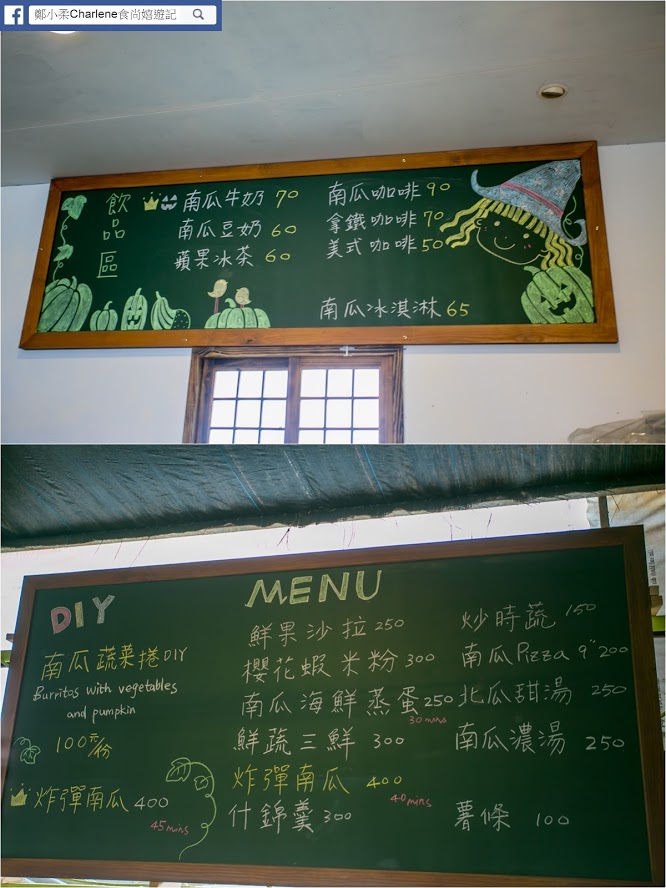 鄭小柔Charlene食尚嬉遊記
飲品區
南瓜牛奶 70
南瓜豆奶 60
蘋果冰茶 60
南瓜咖啡 90
拿鐵咖啡 70
美式咖啡 50
南瓜冰淇淋 65
DIY
南瓜蔬菜捲DIY
Burritos with vegetables
and pumpkin
100元/份
炸彈南瓜 400
45 mins
MENU
鮮果沙拉 250
櫻花蝦米粉 300
南瓜海鮮蒸蛋 250
30 mins
鮮蔬三鮮 300
炸彈南瓜 400
40 mins
什錦羹 300
炒時蔬 150
南瓜Pizza 9" 200
北瓜甜湯 250
南瓜濃湯 250
薯條 100